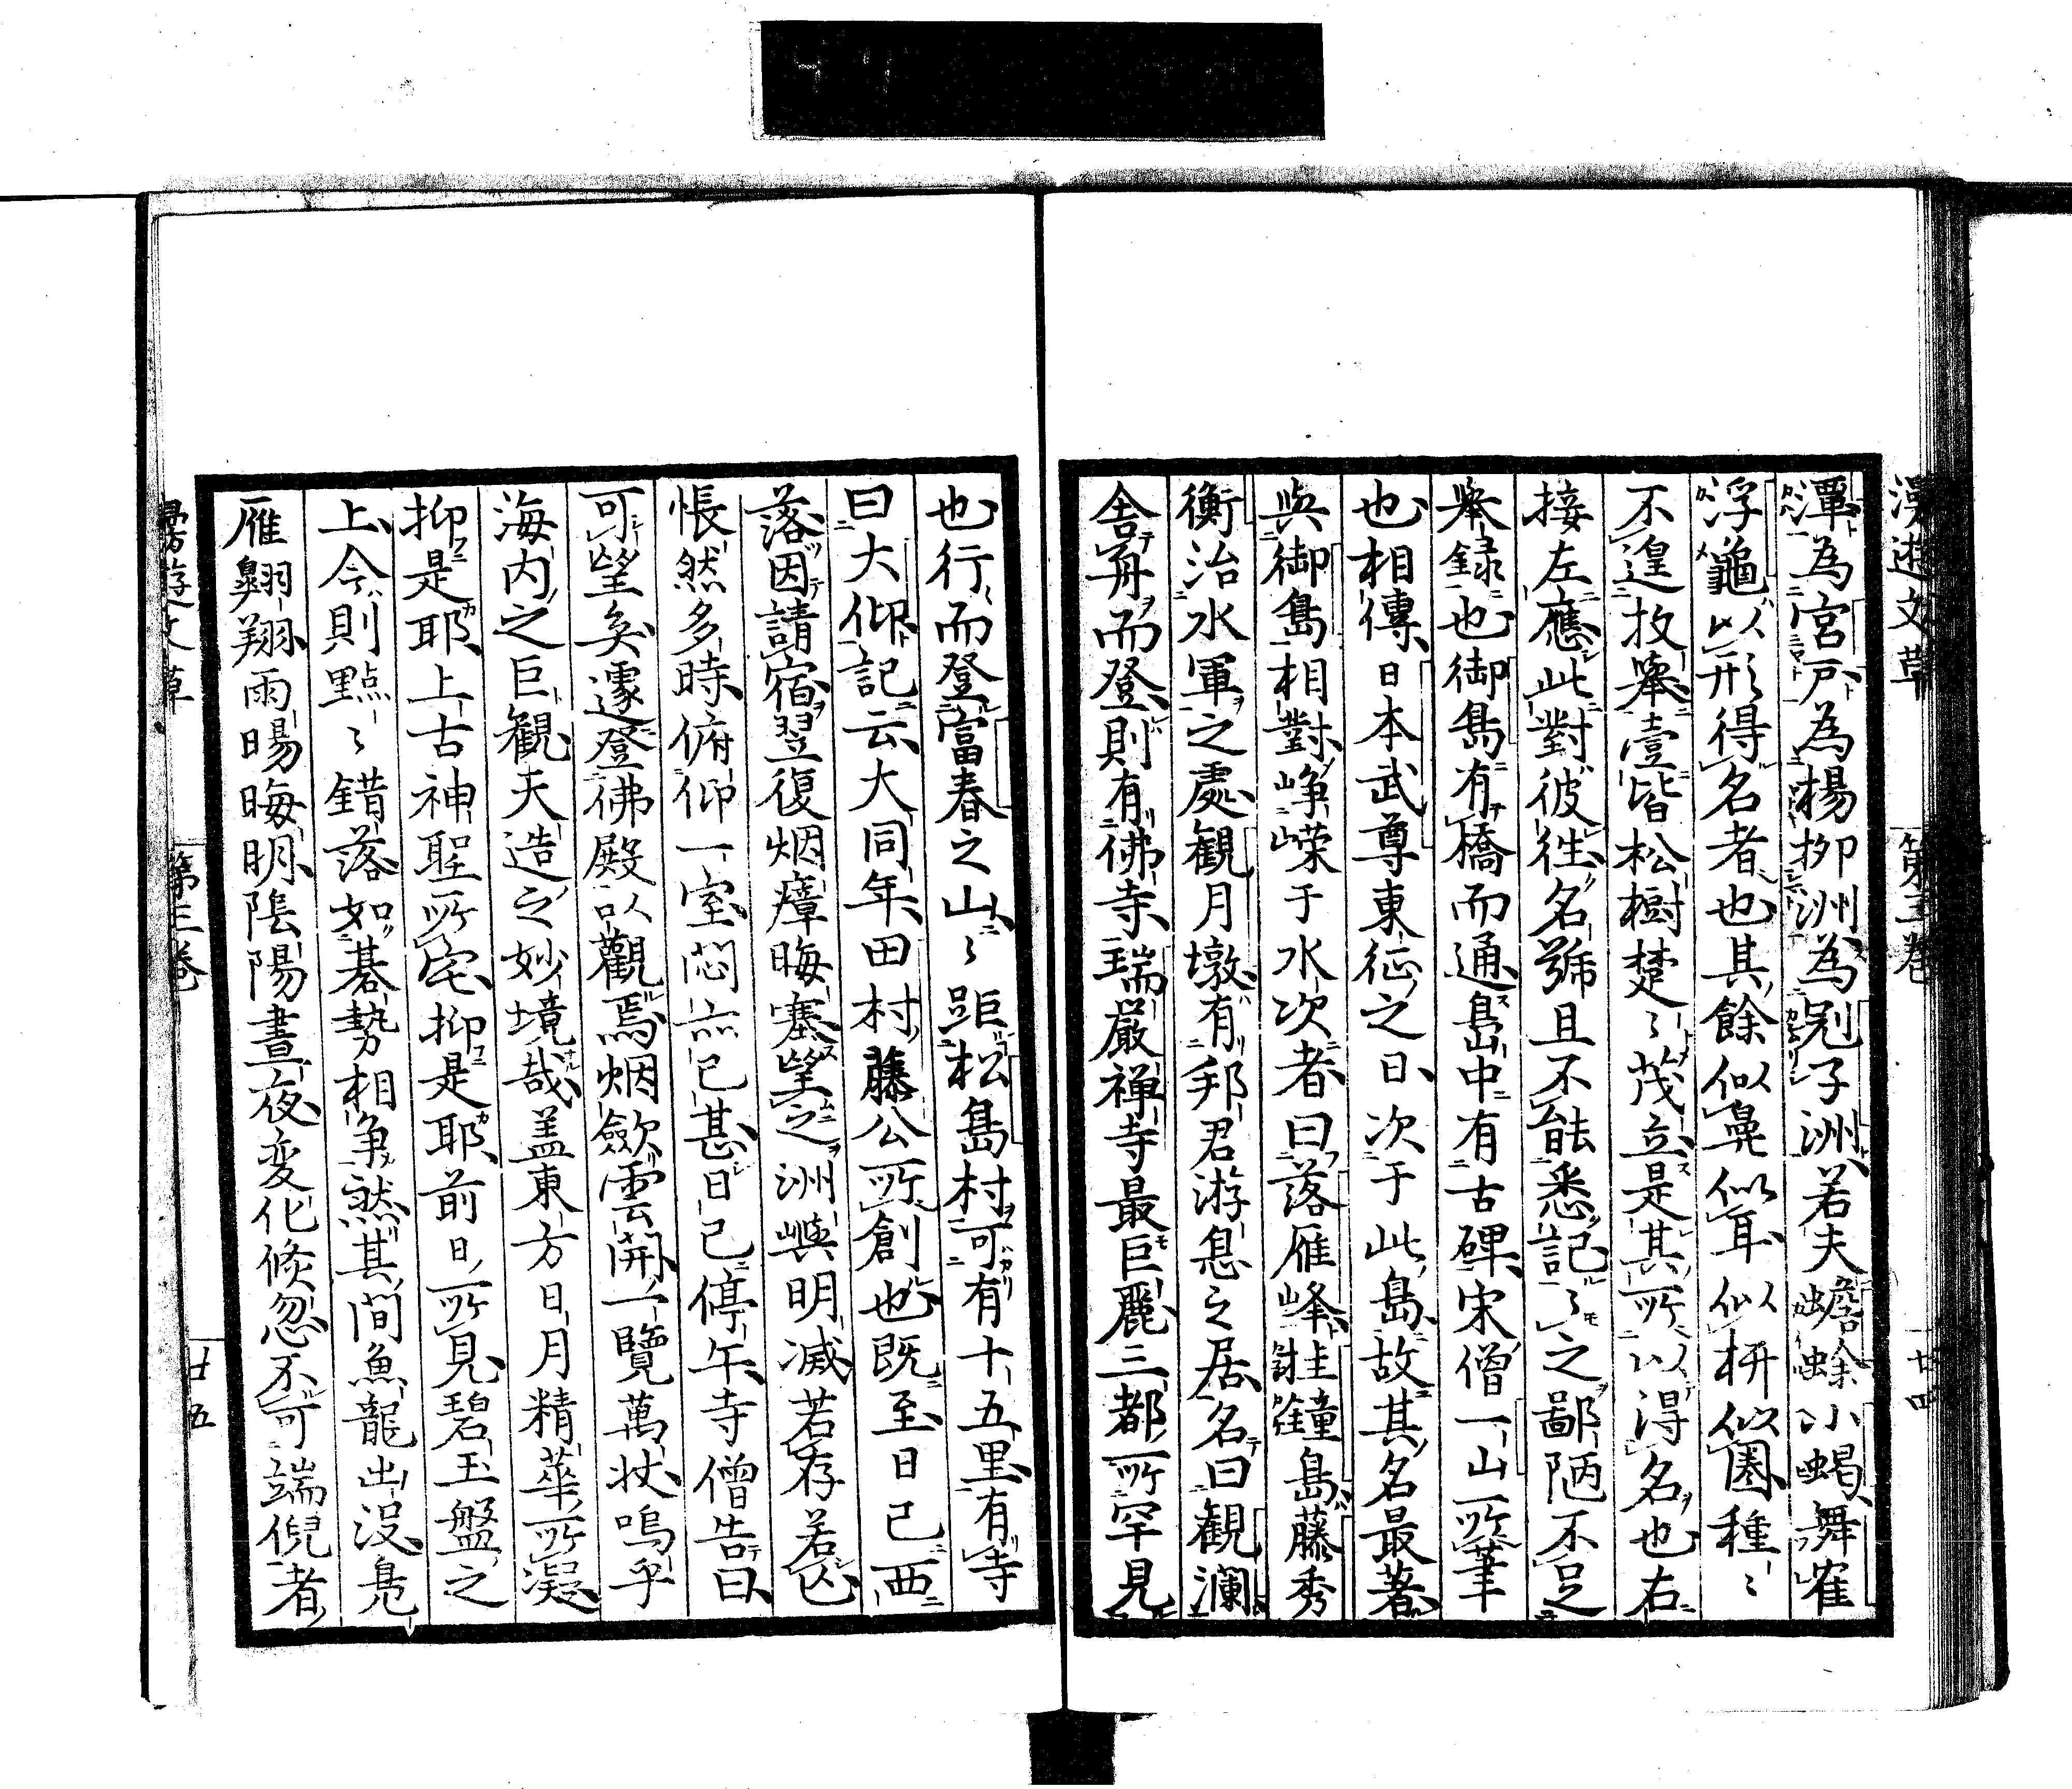 漫遊文草 第三巻 廿四
潭為宮戸為楊柳洲為剜子洲若夫蟾蜍小蝎舞雀
浮龜以形得名者也其餘似鼻似耳似枅似圏種〻
不遑枚擧壹皆松樹楚〻茂立是其所以得名也右
接左應此對彼徃名號且不能悉記〻之鄙陋不足
擧録也御島有橋而通島中有古碑宋僧一山所筆
也相傳日本武尊東征之日次于此島故其名最著
與御島相對崢嶸于水次者曰落雁峰鞋鐘島藤秀
衡治水軍之處観月墩有邦君游息之居名曰観瀾
舎舟而登則有佛寺瑞嚴禅寺最巨麗三都所罕見
也行而登富春之山〻距松島村可有十五里有寺
曰大仰記云大同年田村藤公所創也既至日已西
落因請宿翌復烟瘴晦塞望之洲嶼明滅若存若亾
悵然多時俯仰一室悶亦已甚日已停午寺僧告曰
可望矣遽登佛殿以觀焉烟歛雲開一覽萬状嗚乎
海内之巨観天造之妙境哉盖東方日月精華所凝
抑是耶上古神聖所宅抑是耶前日所見碧玉盤之
上今則點〻錯落如碁勢相争然其間魚龍出没鳧
雁翺翔雨暘晦明陰陽晝夜変化倐忽不可端倪者
漫游文草 第三巻 廿五